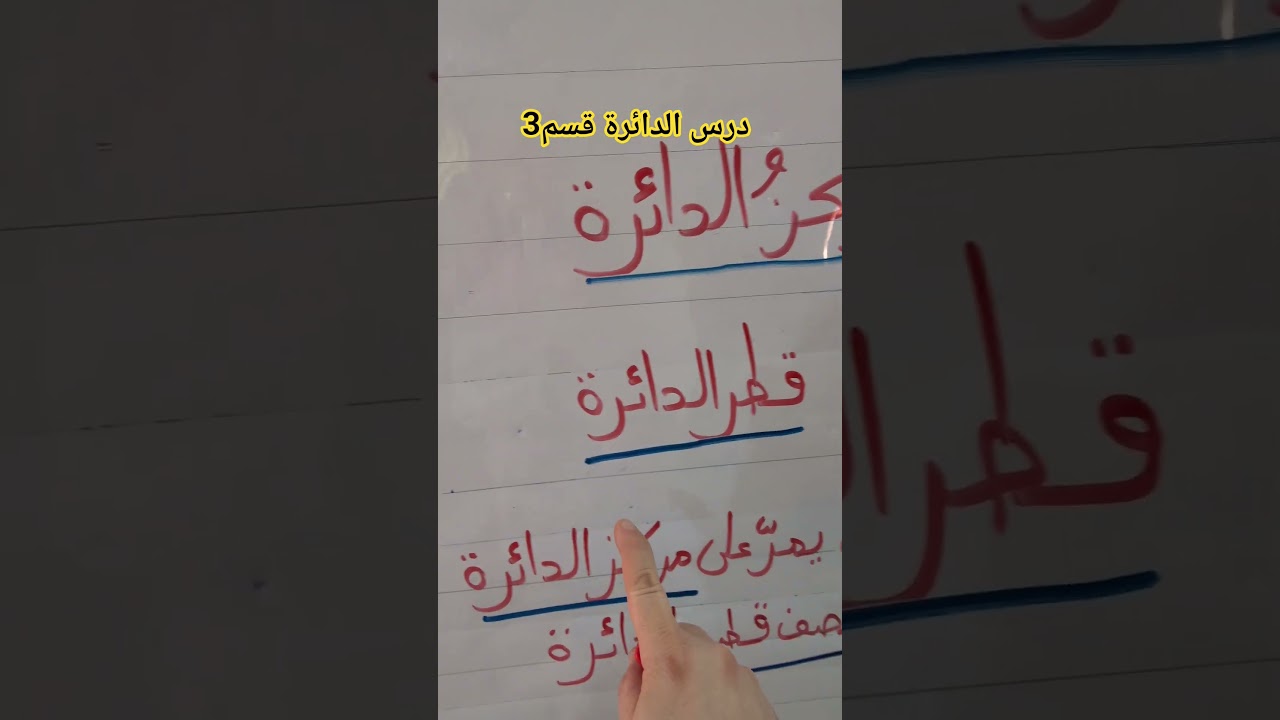 درس الدائرة قسم3
الدائرة
قطر الدائرة
يمرّ على مركز الدائرة
قطر الدائرة